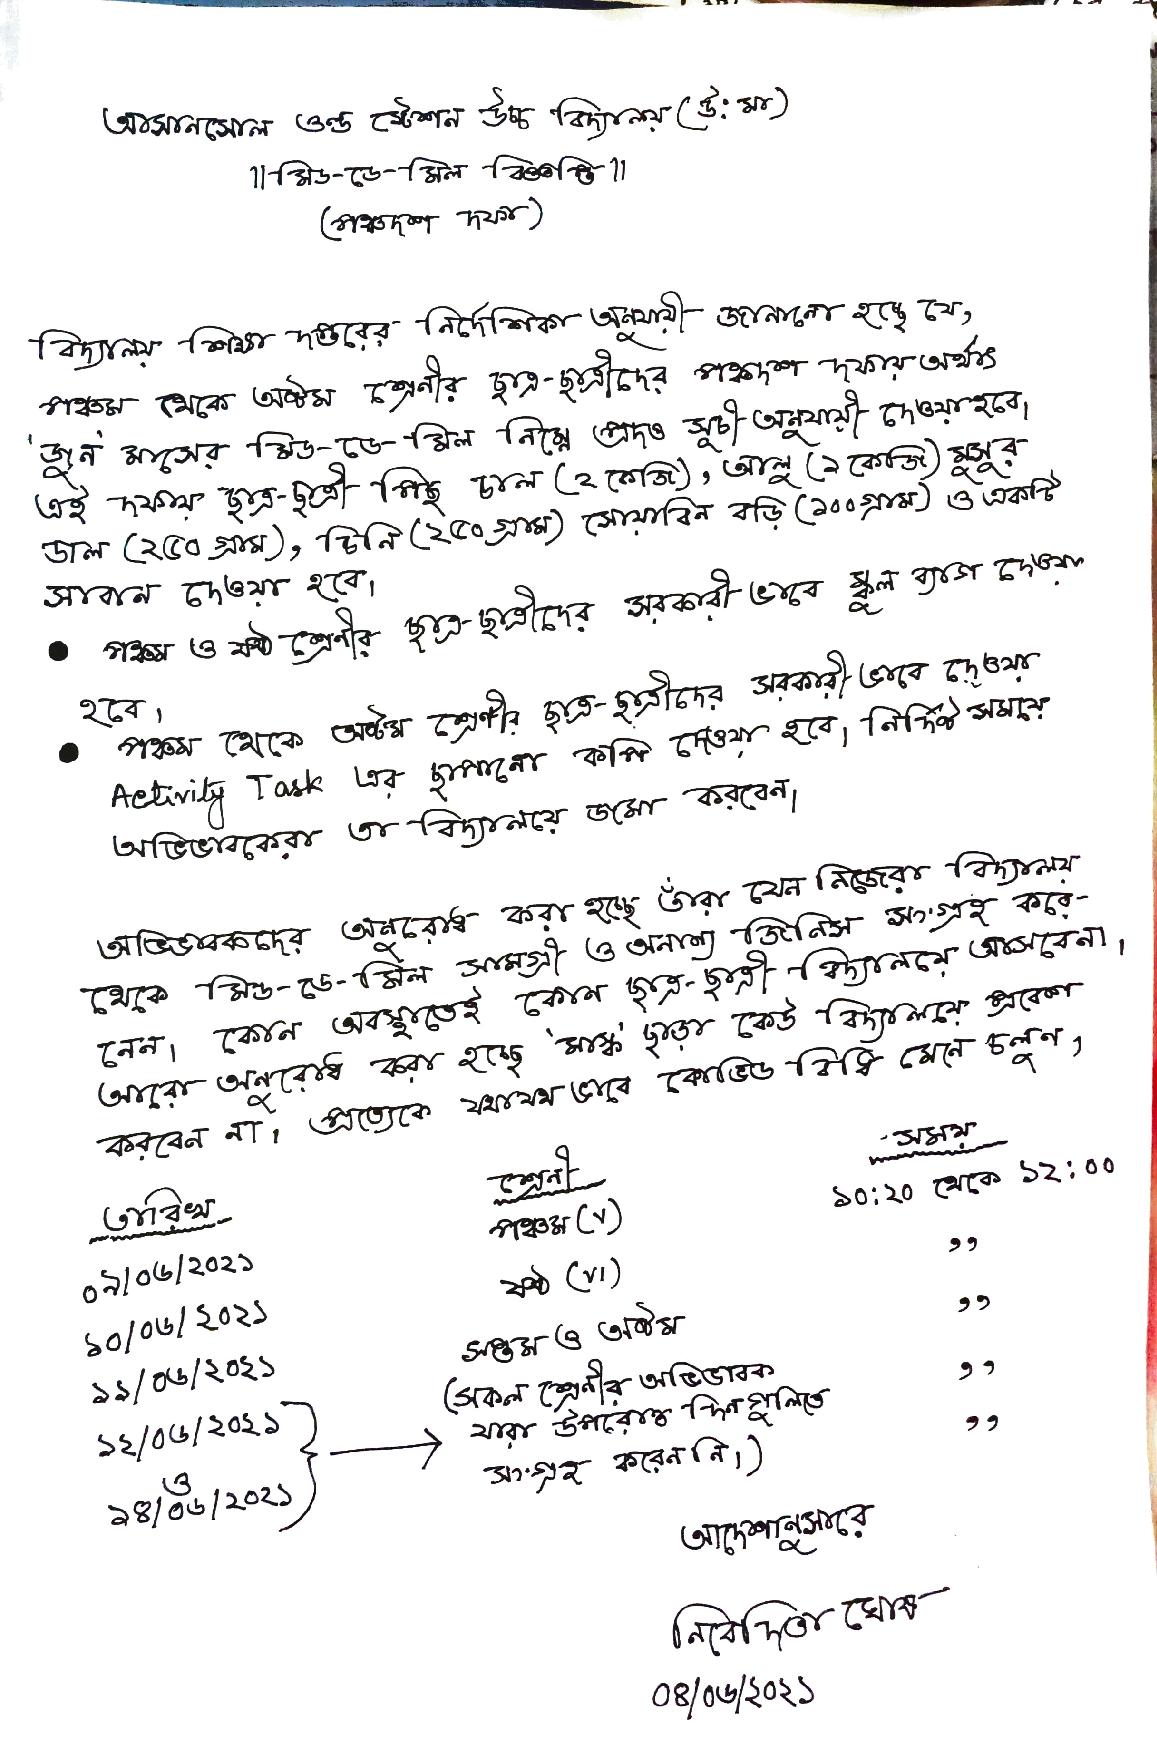 আসানসোল ওল্ড ষ্টেশন উচ্চ বিদ্যালয় (উ: মা)
॥ মিড-ডে-মিল বিজ্ঞপ্তি ॥
(পঞ্চদশ দফা)
বিদ্যালয় শিক্ষা দপ্তরের নির্দেশিকা অনুযায়ী জানানো হচ্ছে যে,
পঞ্চম থেকে অষ্টম শ্রেণীর ছাত্র-ছাত্রীদের পঞ্চদশ দফায় অর্থাৎ
'জুন' মাসের মিড-ডে-মিল নিম্নে প্রদত্ত সূচী অনুযায়ী দেওয়া হবে।
এই দফায় ছাত্র-ছাত্রী পিছু চাল (২ কেজি), আলু (১ কেজি) মুসুর
ডাল (২৫০ গ্রাম), চিনি (২৫০ গ্রাম) সোয়াবিন বড়ি (১০০ গ্রাম) ও একটি
সাবান দেওয়া হবে।
● পঞ্চম ও ষষ্ঠ শ্রেণীর ছাত্র-ছাত্রীদের সরকারী ভাবে স্কুল ব্যাগ দেওয়া
হবে।
● পঞ্চম থেকে অষ্টম শ্রেণীর ছাত্র-ছাত্রীদের সরকারী ভাবে দেওয়া
Activity Task এর ছাপানো কপি দেওয়া হবে। নির্দিষ্ট সময়ে
অভিভাবকেরা তা বিদ্যালয়ে জমা করবেন।
অভিভাবকদের অনুরোধ করা হচ্ছে তাঁরা যেন নিজেরা বিদ্যালয়
থেকে মিড-ডে-মিল সামগ্রী ও অনান্য জিনিস সংগ্রহ করে-
নেন। কোন অবস্থাতেই কোন ছাত্র-ছাত্রী বিদ্যালয়ে আসবেনা।
আরো অনুরোধ করা হচ্ছে 'মাস্ক' ছাড়া কেউ বিদ্যালয়ে প্রবেশ
করবেন না। প্রত্যেকে যথাযথ ভাবে কোভিড বিধি মেনে চলুন,
তারিখ শ্রেণী সময়
০৯/০৬/২০২১ পঞ্চম (V) ১০:২০ থেকে ১২:০০
১০/০৬/২০২১ ষষ্ঠ (VI) ,,
১১/০৬/২০২১ সপ্তম ও অষ্টম ,,
১২/০৬/২০২১ (সকল শ্রেণীর অভিভাবক ,,
ও যারা উপরোক্ত দিন গুলিতে ,,
১৪/০৬/২০২১ সংগ্রহ করেননি।)
আদেশানুসারে
নিবেদিতা ঘোষ
০৪/০৬/২০২১